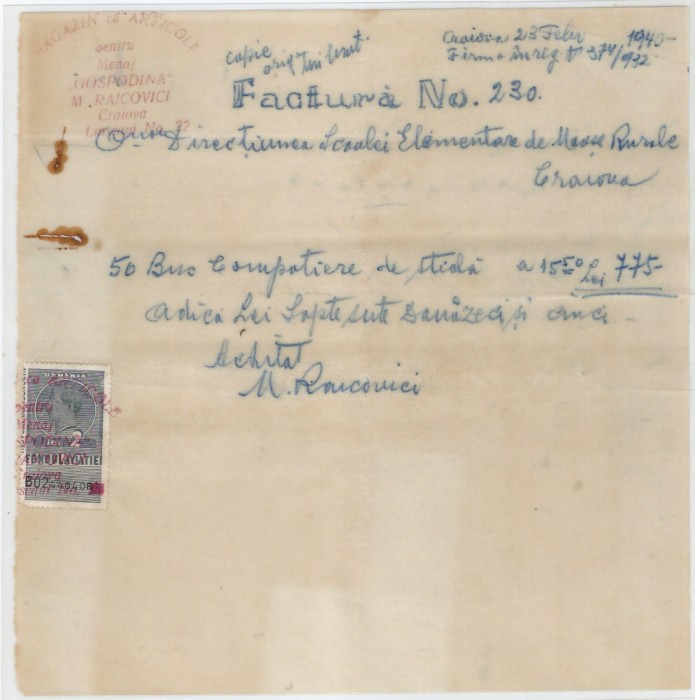 MAGAZIN CU ARTICOLE
pentru
Menaj
"GOSPODINA"
M. RAICOVICI
Craiova
No. 22
copie
Craiova 23 Febr 1940-
Firma înreg 374/932
Factură No. 230.
Direcțiunea Școalei Elementare de Moașe Rurale
Craiova
50 Buc Compotiere de sticlă a 15.50 Lei 775-
Adica Lei Șaptesute Șaptezeci și cinci -
Achitat
M. Raicovici
ROMANIA
pentru
Menaj
FONDUL AVIAȚIEI
B02